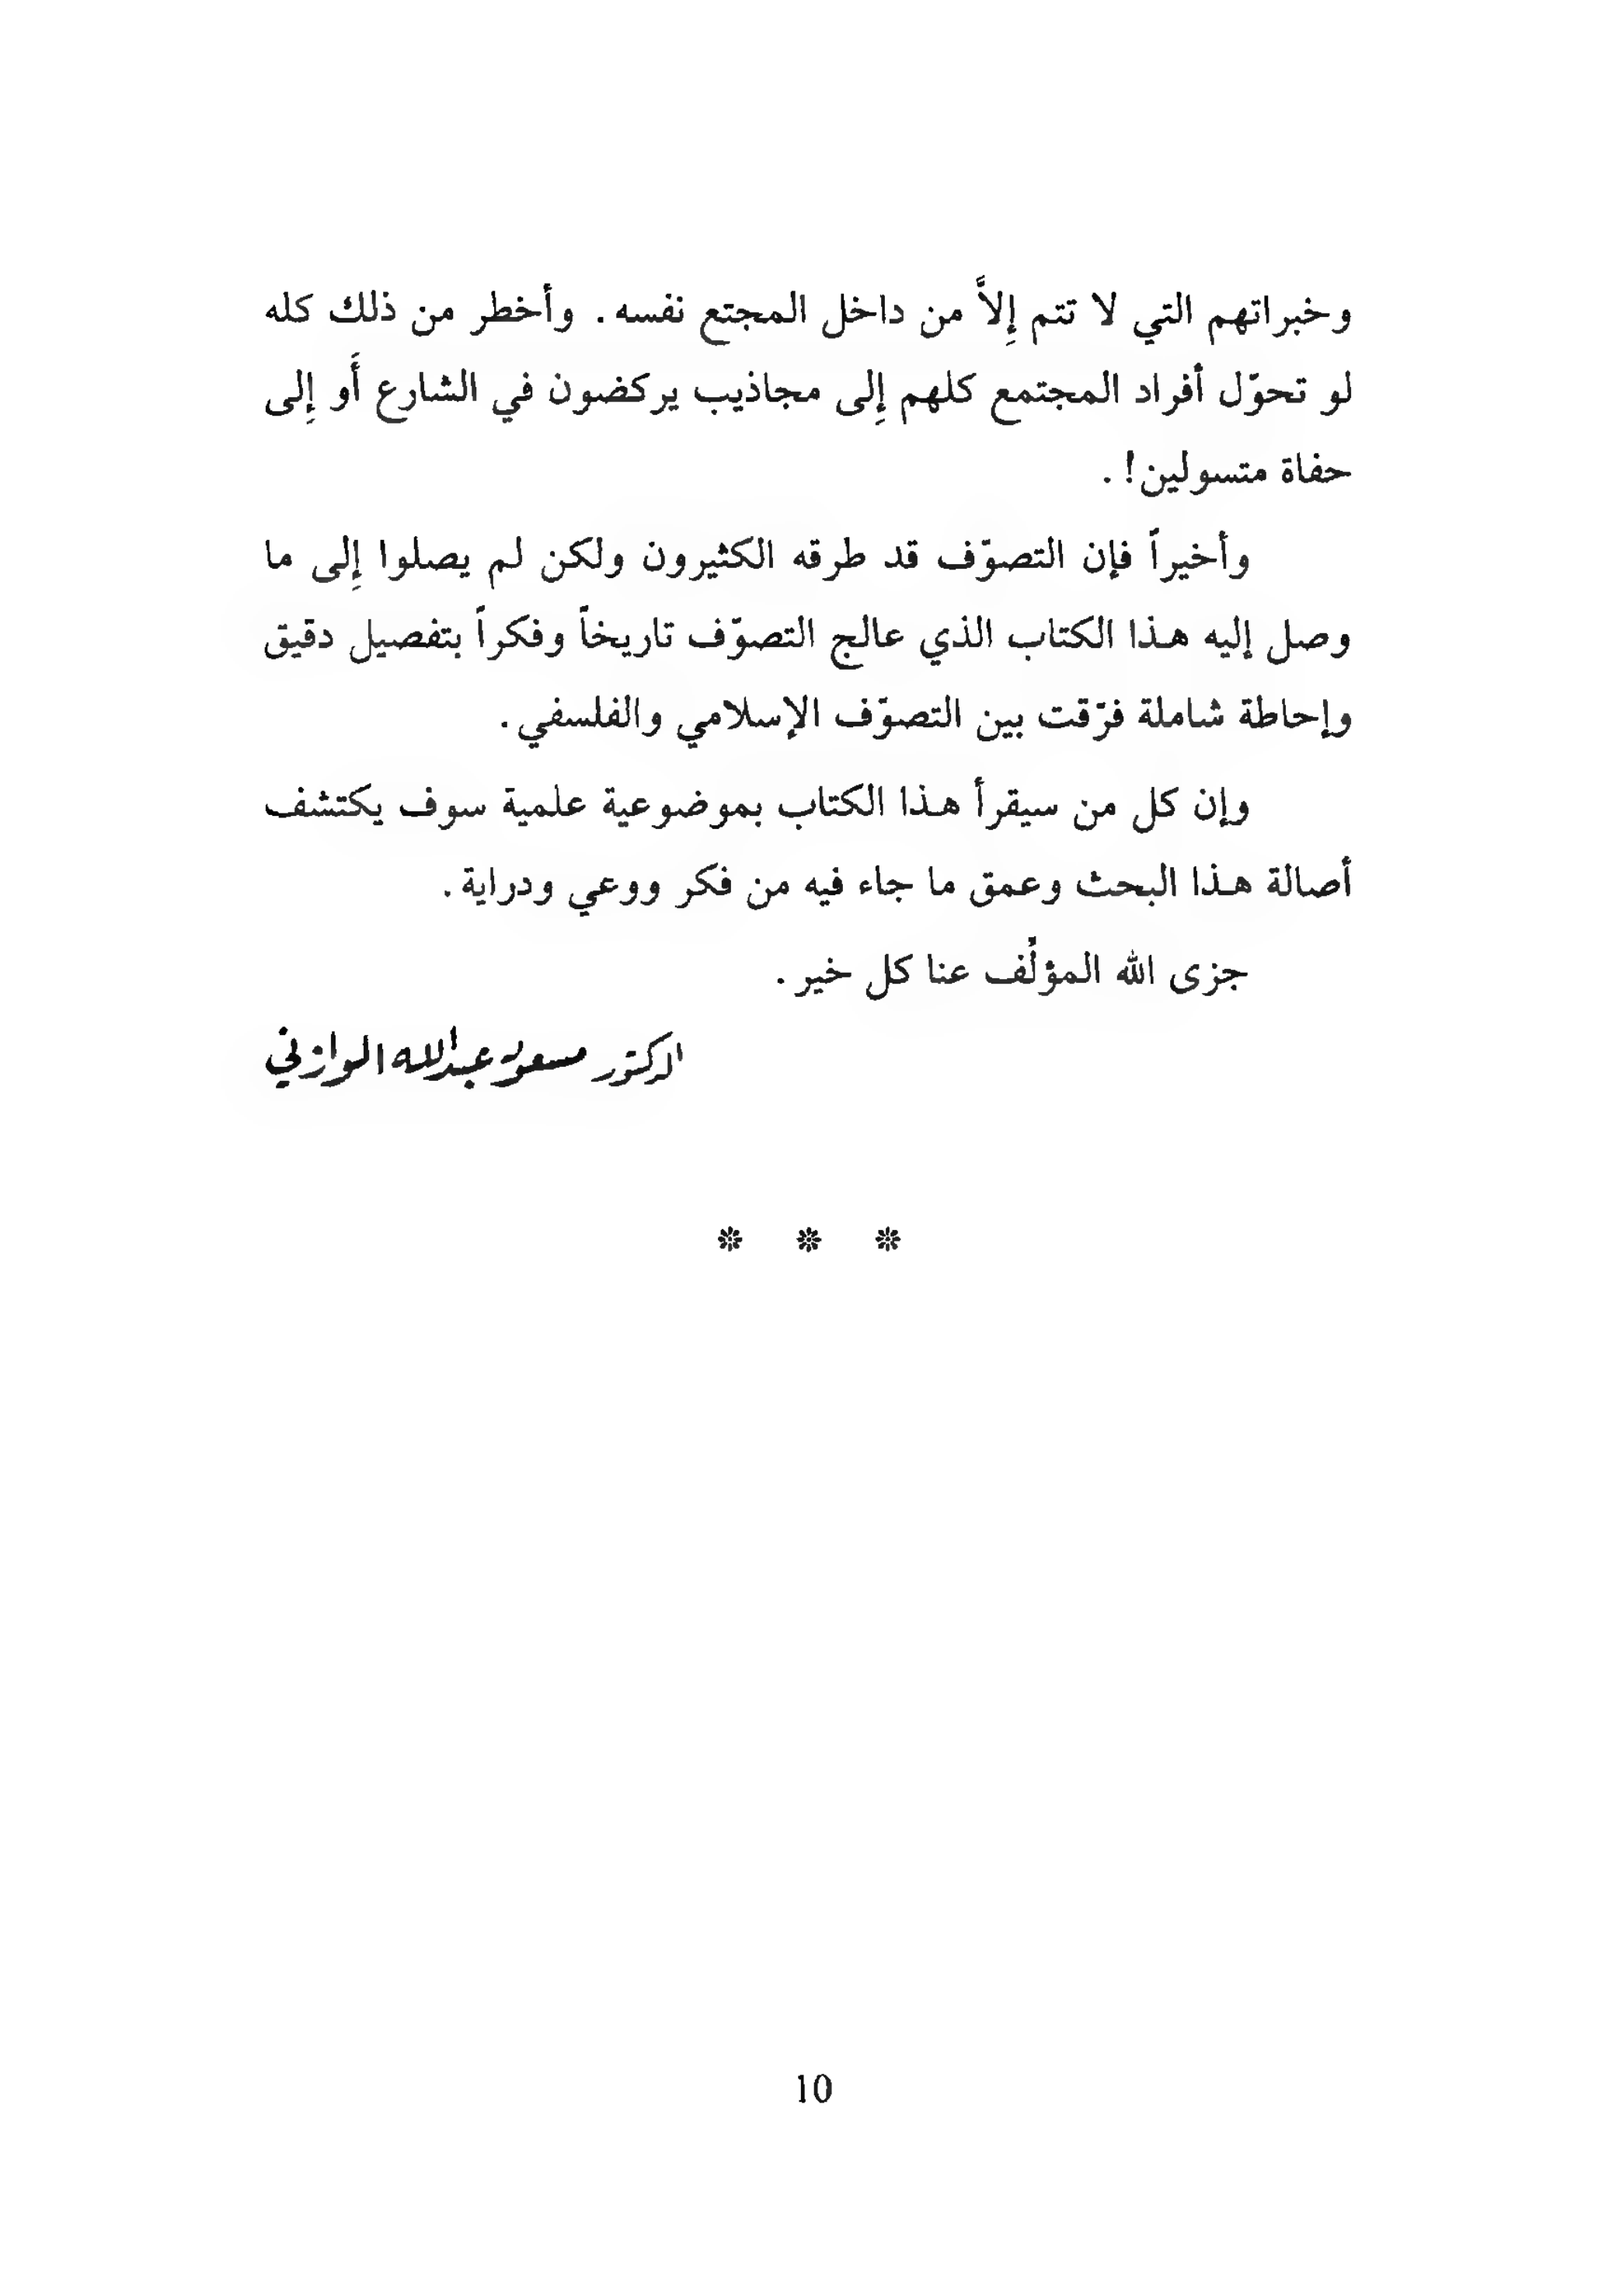 وخبراتهم التي لا تتم إِلاَّ من داخل المجتع نفسه . وأخطر من ذلك كله
لو تحوّل أفراد المجتمع كلهم إِلى مجاذيب يركضون في الشارع أَو إِلى
حفاة متسولين! .
وأخيراً فإن التصوّف قد طرقه الكثيرون ولكن لم يصلوا إِلى ما
وصل إليه هذا الكتاب الذي عالج التصوّف تاريخاً وفكراً بتفصيل دقيق
وإحاطة شاملة فرّقت بين التصوّف الإسلامي والفلسفي .
وإن كل من سيقرأ هذا الكتاب بموضوعية علمية سوف يكتشف
أصالة هذا البحث وعمق ما جاء فيه من فكر ووعي ودراية .
جزى الله المؤلُف عنا كل خير .
الدكتور مسعود عبدالله الوازني
* * *
10